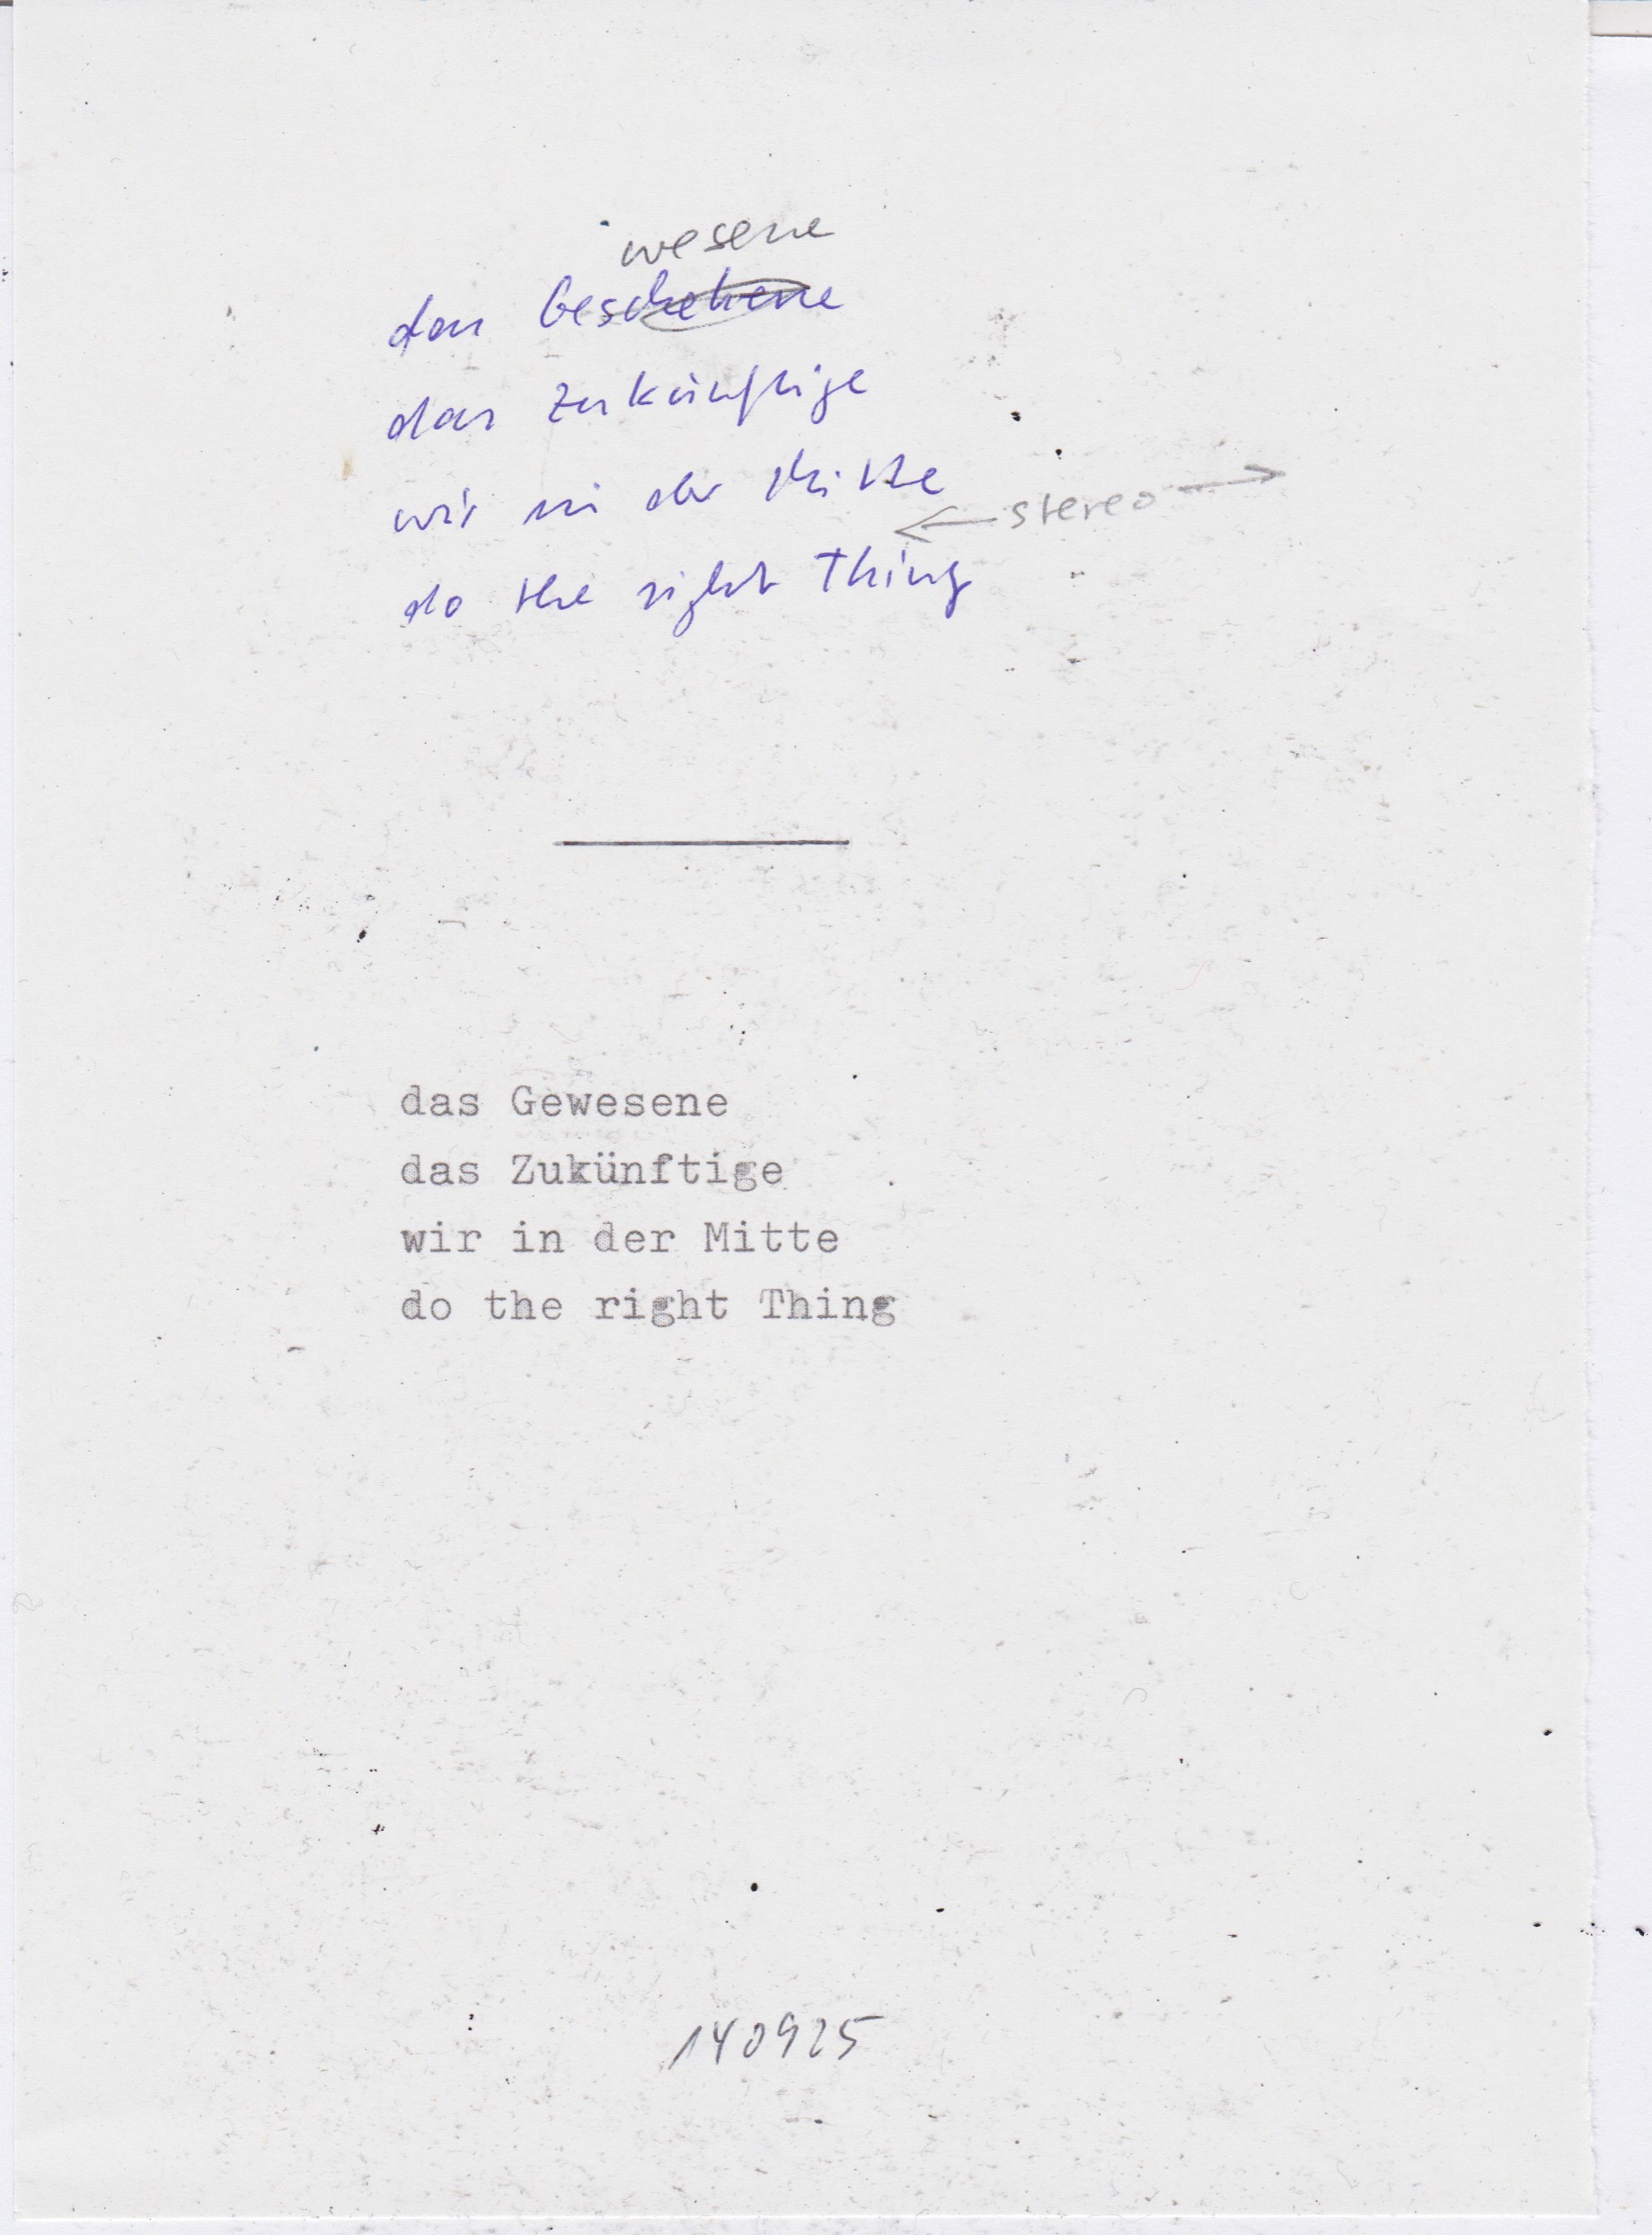 wesene
das Geschehene
das Zukünftige
wir in der Mitte
← stereo →
do the right Thing
das Gewesene
das Zukünftige
wir in der Mitte
do the right Thing
140925